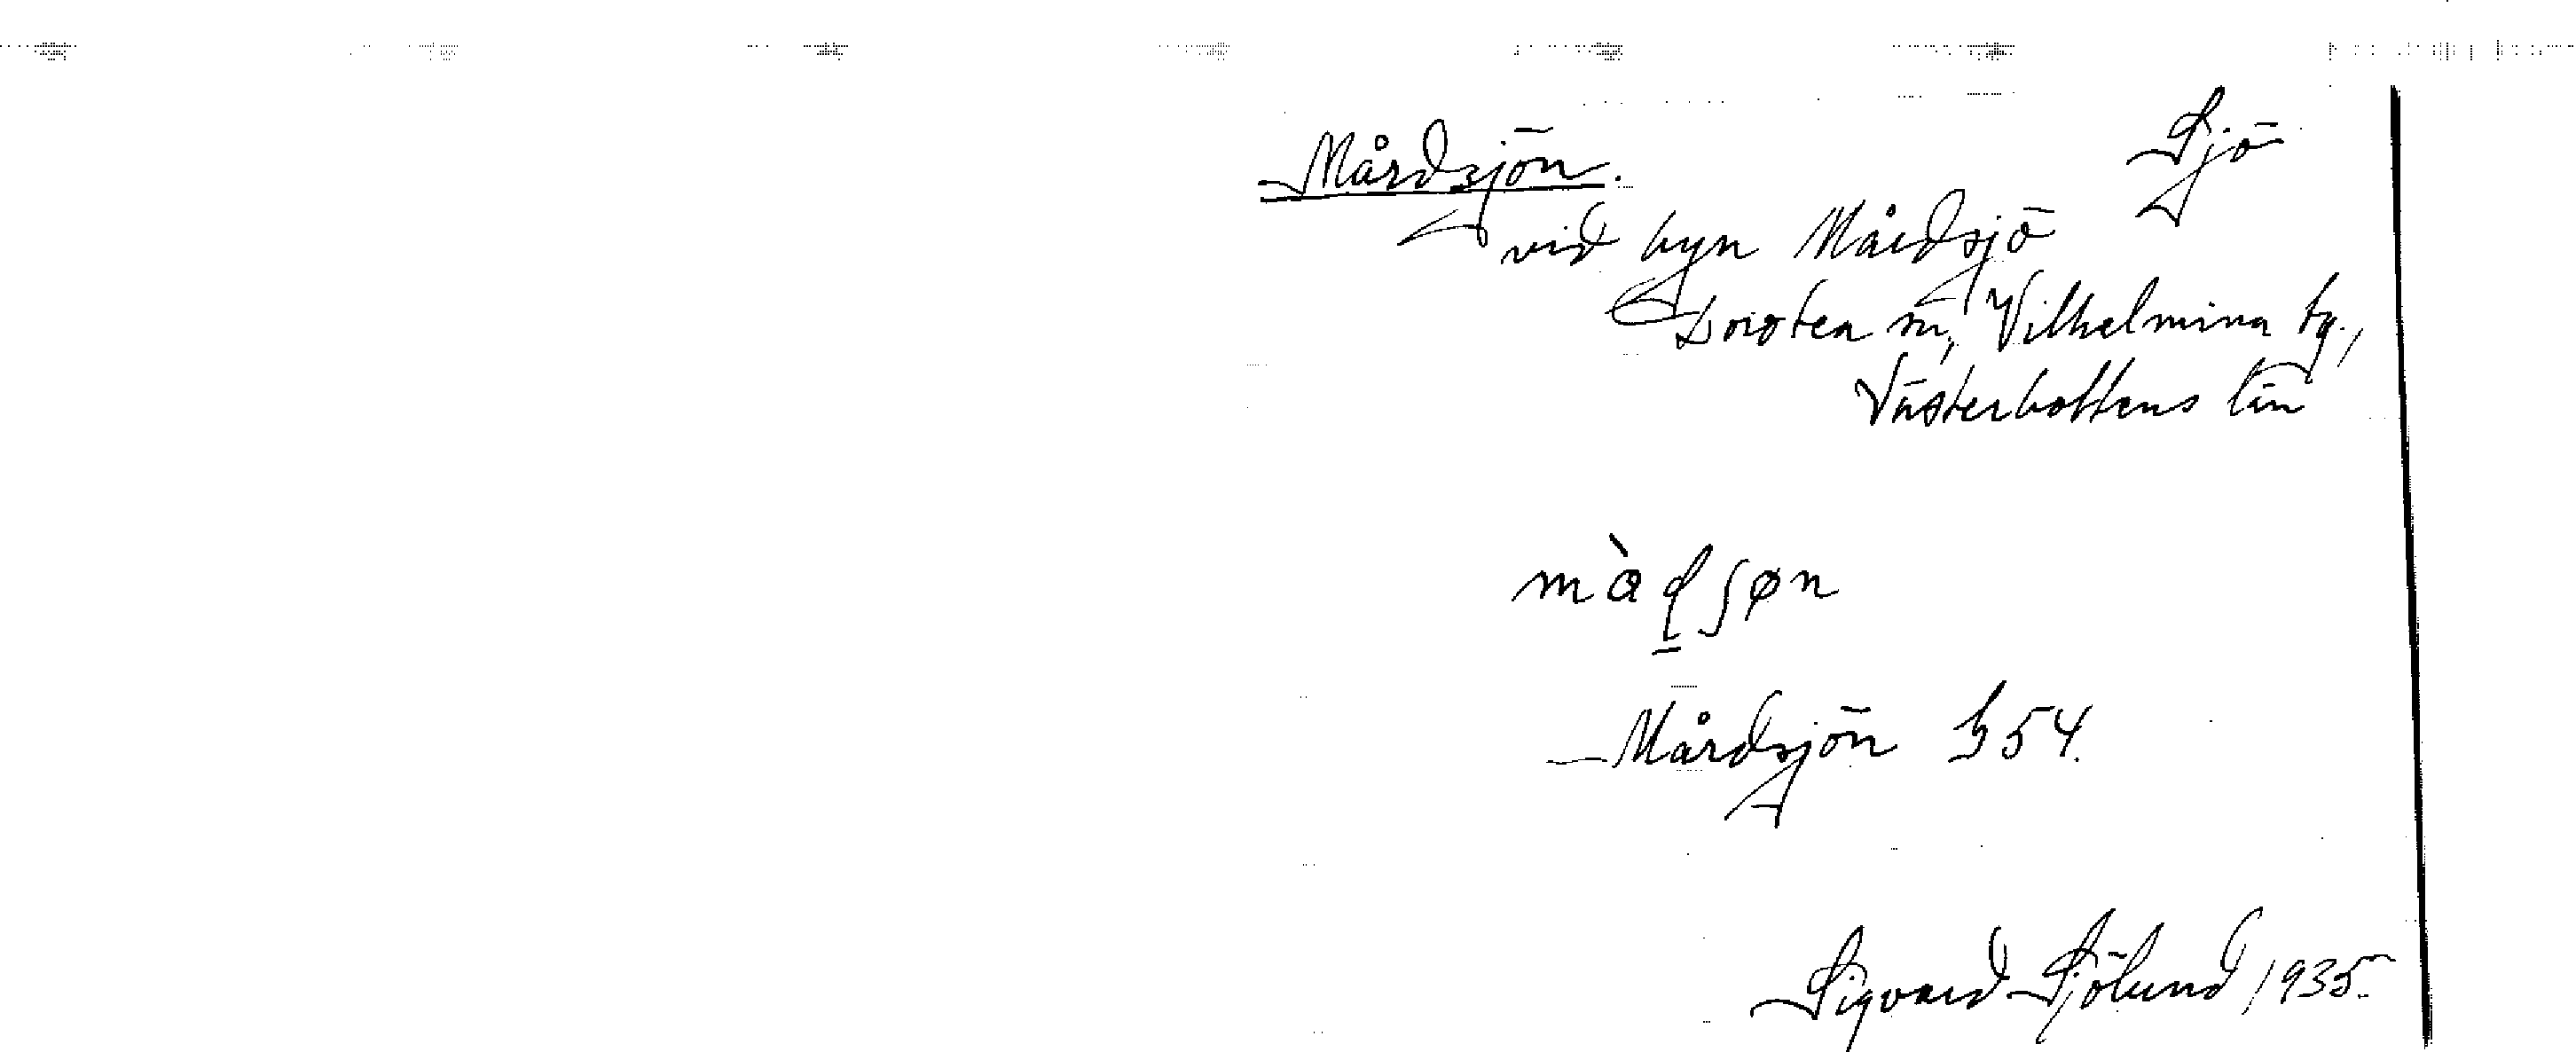 Mårdsjön. Sjö
vid byn Mårdsjö
Dorotea sn, Vilhelmina tg.,
Västerbottens län
mɑ̀ɖʃøn
Mårdsjön b 54.
Sigvard Sjölund 1935.